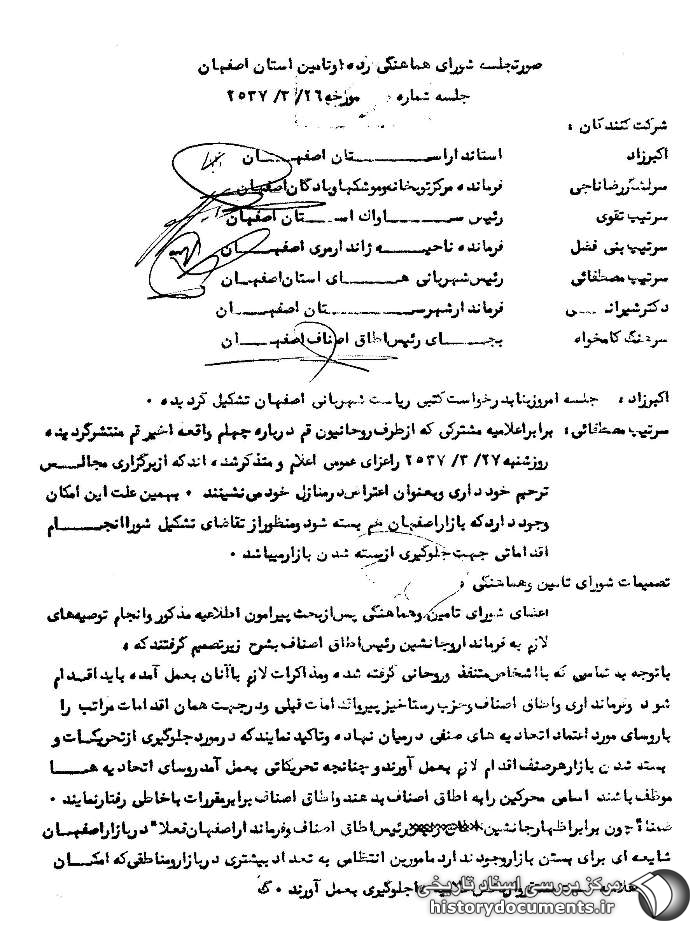 صورتجلسه شورای هماهنگی رده ۱ وتامین استان اصفهان
جلسه شماره مورخه ۲۶/ ۳/ ۲۵۳۷
شرکت کنندگان :
اکبرزاد استاندار استان اصفهان
سرلشگر رضا ناجی فرمانده مرکز توپخانه وموشکها وپادگان اصفهان
سرتیپ تقوی رئیس ساواک استان اصفهان
سرتیپ بنی فضل فرمانده ناحیه ژاندارمری اصفهان
سرتیپ مصطفائی رئیس شهربانی های استان اصفهان
دکتر شیرانی فرماندار شهرستان اصفهان
سرهنگ کامخواه بجای رئیس اطاق اصناف اصفهان
اکبرزاد : جلسه امروز بنا بدرخواست کتبی ریاست شهربانی اصفهان تشکیل گردیده ۰
سرتیپ مصطفائی : برابر اعلامیه مشترکی که ازطرف روحانیون قم درباره چهلم واقعه اخیر قم منتشرگردیده
روزشنبه ۲۷/ ۳/ ۲۵۳۷ راعزای عمومی اعلام و متذکرشده اند که ازبرگزاری مجالس
ترحیم خود داری وبعنوان اعتراض درمنازل خود می نشینند ۰ بهمین علت این امکان
وجود دارد که بازار اصفهان هم بسته شود ومنظوراز تقاضای تشکیل شورا انجام
اقداماتی جهت جلوگیری ازبسته شدن بازار میباشد ۰
تصمیمات شورای تامین وهماهنگی :
اعضای شورای تامین وهماهنگی پس ازبحث پیرامون اطلاعیه مذکور وانجام توصیه های
لازم به فرماندار وجانشین رئیس اطاق اصناف بشرح زیرتصمیم گرفتند که :
باتوجه به تماسی که بااشخاص متنفذ وروحانی گرفته شده ومذاکرات لازم باآنان بعمل آمده باید اقدام
شود وفرمانداری واطاق اصناف وحزب رستاخیز پیرواقدامات قبلی ودرجهت همان اقدامات مراتب را
باروسای مورد اعتماد اتحادیه های صنفی درمیان نهاده وتاکید نمایند که درمورد جلوگیری ازتحریکات و
بسته شدن بازار هرصنف اقدام لازم بعمل آورند و چنانچه تحریکاتی بعمل آمد روسای اتحادیه ها
موظف باشند اسامی محرکین را به اطاق اصناف بدهند واطاق اصناف برابرمقررات باخاطی رفتارنمایند ۰
ضمنا" چون برابراظهار جانشین رئیس اطاق اصناف وفرماندار اصفهان فعلا" دربازار اصفهان
شایعه ای برای بستن بازار وجود ندارد مامورین انتظامی به تعداد بیشتری دربازار ومناطقی که امکان
جلوگیری بعمل آورند ۰
مرکز بررسی اسناد تاریخی
historydocuments.ir